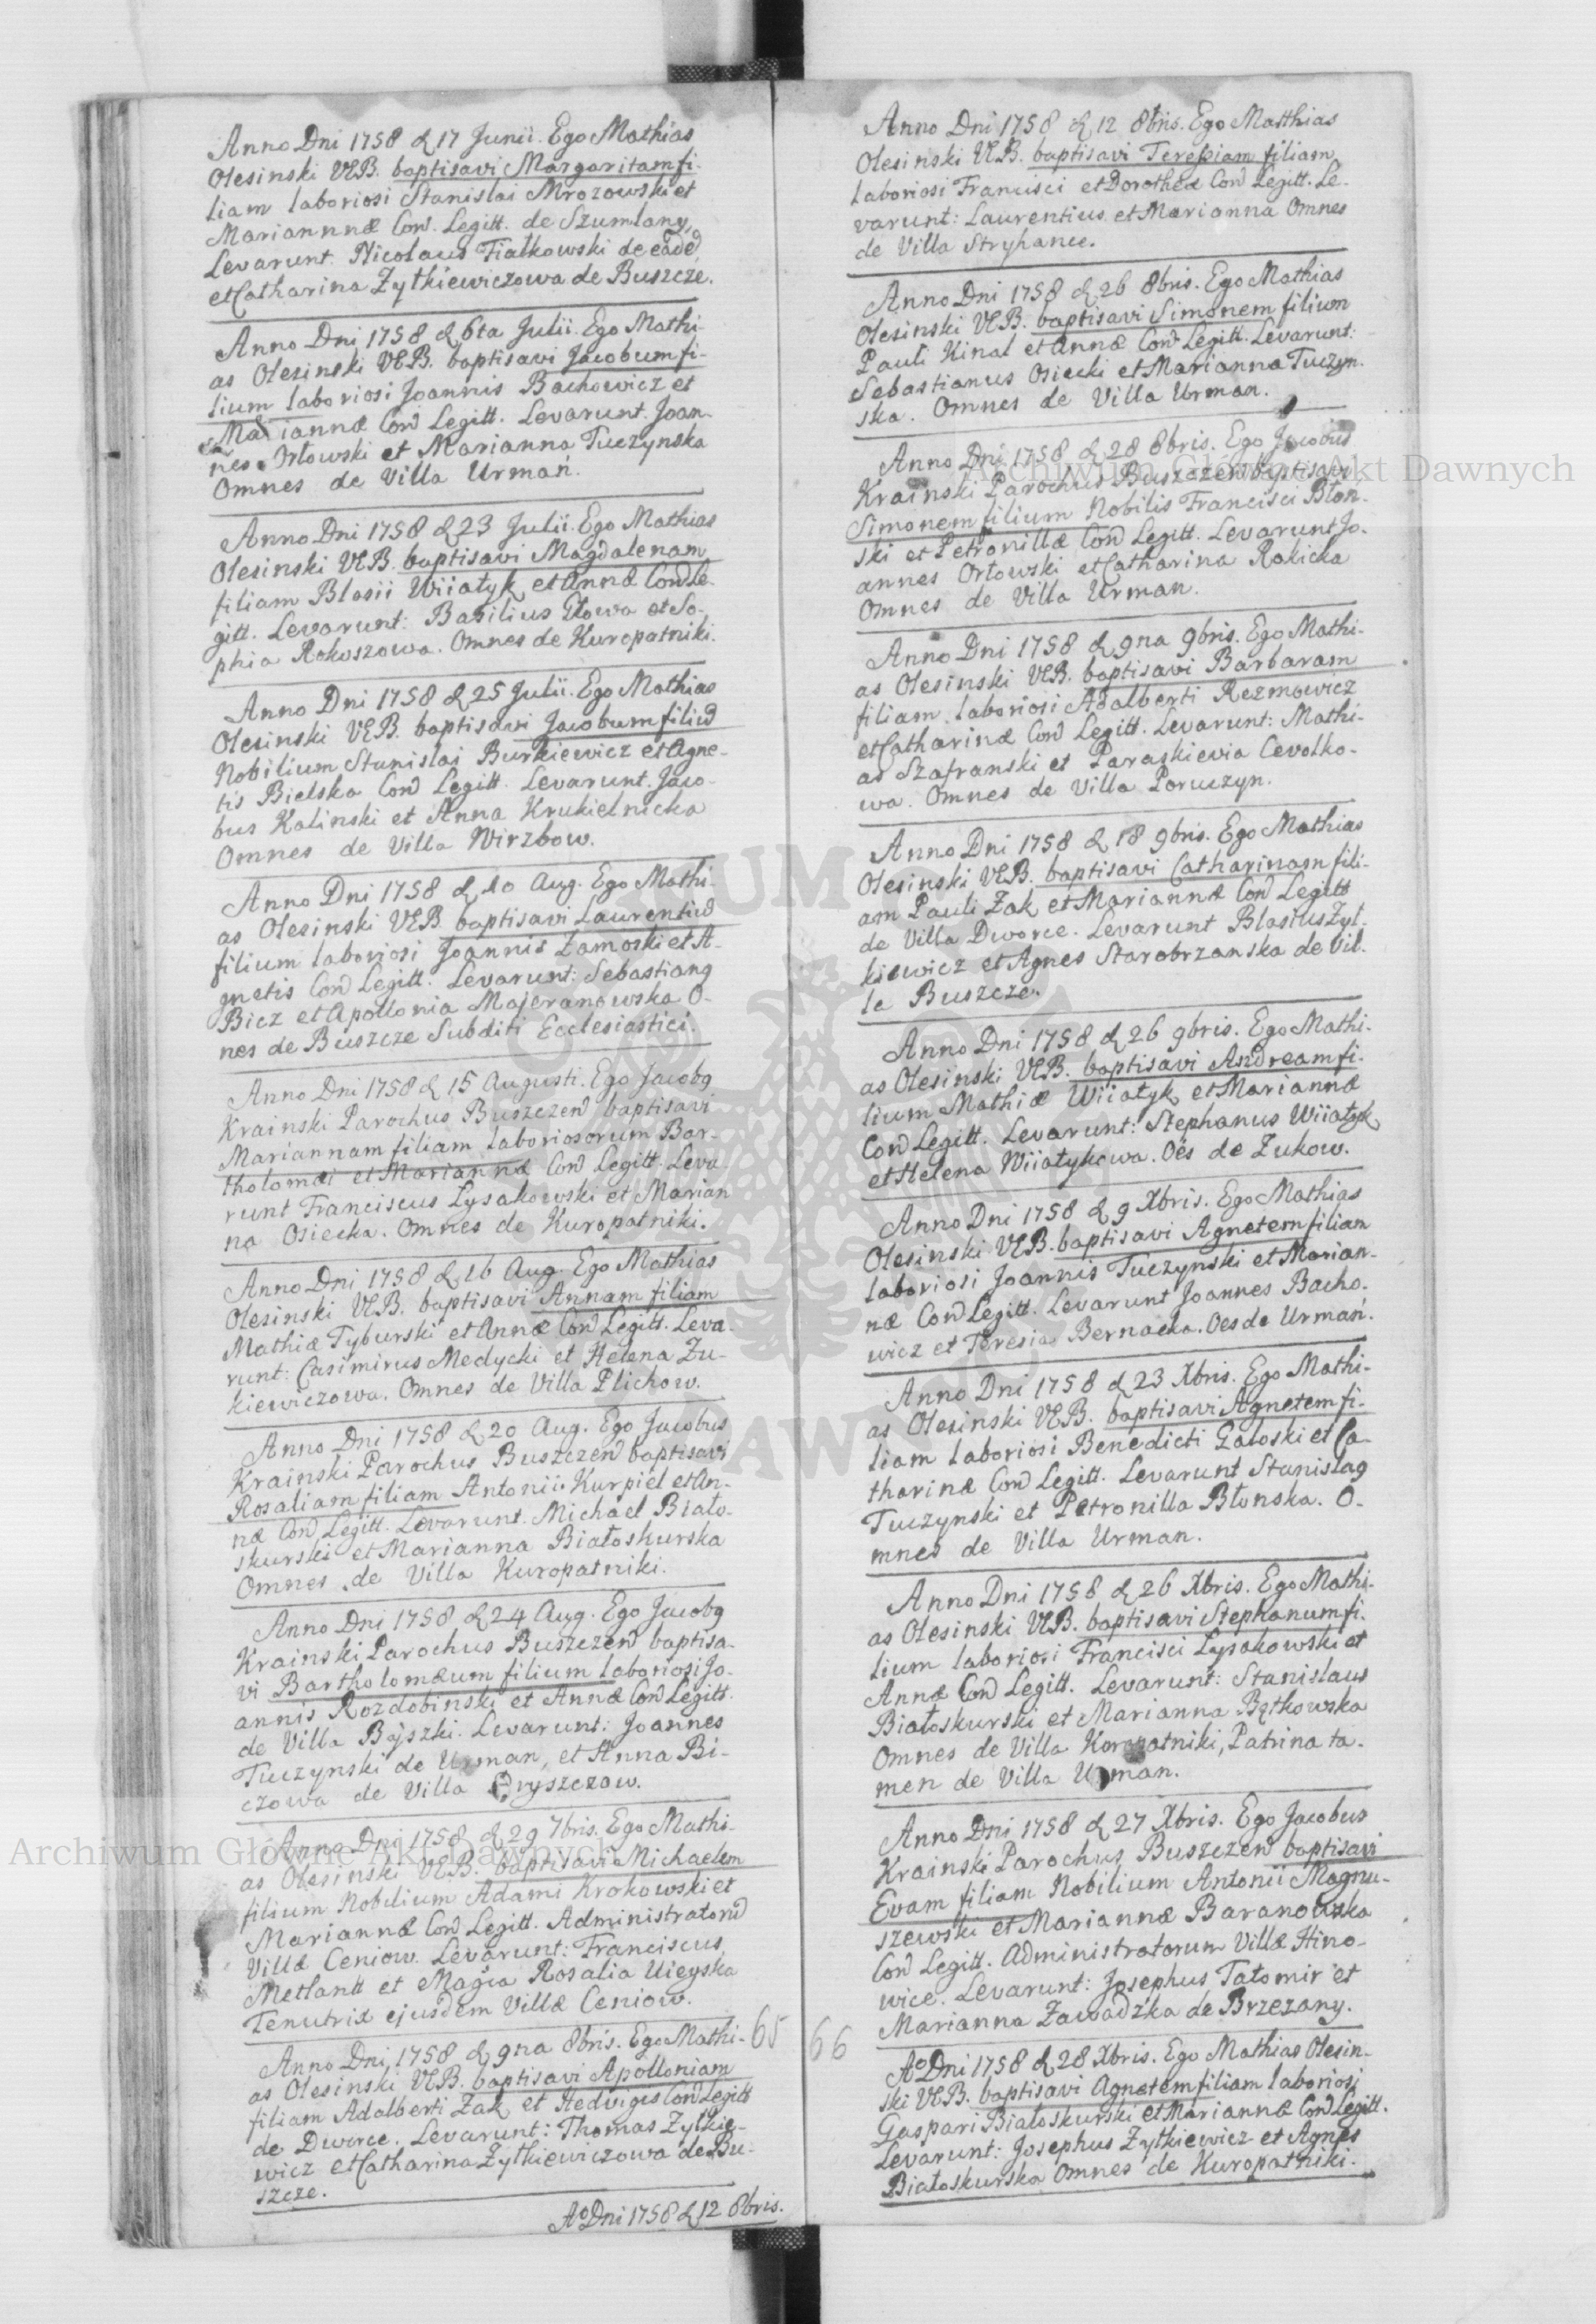 Anno Dni 1758 d 17 Junii. Ego Mathias
Olesinski VEB. baptisavi Margaritam fi-
liam laboriosi Stanislai Mrozowski et
Mariannæ Con. Legitt. de Szumlany,
Levarunt. Nicolaus Fiałkowski de eaded
et Catharina Zytkiewiczowa de Buszcze.
Anno Dni 1758 d 6ta Julii. Ego Mathi-
as Olesinski VEB. baptisavi Jacobum fi-
lium laboriosi Joannis Bachowicz et
Mariannæ Con Legitt. Levarunt. Joan-
nes Orłowski et Marianna Tuczynska
Omnes de Villa Urmań.
Anno Dni 1758 d 23 Julii. Ego Mathias
Olesinski VEB. baptisavi Magdalenam
filiam Blasii Wiiatyk et Annæ Con Le-
gitt. Levarunt: Basilius Głowa et So-
phia Rokoszowa. Omnes de Kuropatniki.
Anno Dni 1758 d 25 Julii. Ego Mathias
Olesinski VEB. baptisavi Jacobum filiu
Nobilium Stanislai Burkiewicz et Agne-
tis Bielska Con Legitt. Levarunt. Jaco-
bus Kalinski et Anna Krukielnicka
Omnes de Villa Wirzbow.
Anno Dni 1758 d 10 Aug. Ego Mathi-
as Olesinski VEB baptisavi Laurentiu
filium laboriosi Joannis Zamoski et A-
gnetis Con Legitt. Levarunt: Sebastiang
Bicz et Apollonia Majeranowska O-
nes de Buszcze Subditi Ecclesiastici.
Anno Dni 1758 d 15 Augusti. Ego Jacobg
Krainski Parochus Buszczen baptisavi
Mariannam filiam laboriosorum Bar-
tholomæi et Mariannæ Con Legitt. Leva
runt Franciscus Lysakowski et Marian
na Osiecka. Omnes de Kuropatniki.
Anno Dni 1758 d 16 Aug. Ego Mathias
Olesinski VEB. baptisavi Annam filiam
Mathiæ Tyburski et Annæ Con Legitt. Leva-
runt: Casimirus Medycki et Helena Zu-
kiewiczowa. Omnes de Villa Plichow.
Anno Dni 1758 d 20 Aug. Ego Jacobus
Krainski Parochus Buszczen baptisavi
Rosaliam filiam Antonii Kurpiel et An-
næ Con Legitt. Levarunt. Michael Biało-
skurski et Marianna Białoskurska
Omnes de Villa Kuropatniki.
Anno Dni 1758 d 24 Aug. Ego Jacobg
Krainski Parochus Buszczen baptisa-
vi Bartholomæum filium laboriosi Jo-
annis Rozdobinski et Annæ Con Legitt.
de Villa Bajszki. Levarunt: Joannes
Tuczynski de Urman, et Anna Bi-
czowa de Villa Dryszczow.
Anno Dni 1758 d 29 7bris. Ego Mathi-
as Olesinski VEB. baptisavi Michaelem
filium Nobilium Adami Krokowski et
Mariannæ Con Legitt. Administratoru
Villæ Ceniow. Levarunt: Franciscus
Metlantt et Magca Rosalia Uieyska
Tenutrix ejusdem Villæ Ceniow.
Anno Dni 1758 d 9na 8bris. Ego Mathi-
as Olesinski VEB. baptisavi Apolloniam
filiam Adalberti Zak et Hedvigis Con Legitt
de Dworce. Levarunt: Thomas Zytkie-
wicz et Catharina Zytkiewiczowa de Bu-
szcze.
Ao Dni 1758 d 12 8bris.
65
Anno Dni 1758 d 12 8bris. Ego Matthias
Olesinski VEB. baptisavi Teressiam filiam
laboriosi Francisci et Dorotheæ Con Legitt. Le-
varunt: Laurentius et Marianna Omnes
de Villa Stryhance.
Anno Dni 1758 d 26 8bris. Ego Mathias
Olesinski VEB. baptisavi Simonem filium
Pauli Kinal et Annæ Con Legitt. Levarunt:
Sebastianus Osiecki et Marianna Tuczyn-
ska. Omnes de Villa Urman.
Anno Dni 1758 d 28 8bris. Ego Jacobus
Krainski Parochus Buszczen baptisavi
Simonem filium Nobilis Francisci Błon-
ski et Petronillæ Con Legitt. Levarunt Jo-
annes Orłowski et Catharina Rakicka
Omnes de Villa Urman.
Anno Dni 1758 d 9na 9bris. Ego Mathi-
as Olesinski VEB. baptisavi Barbaram
filiam laboriosi Adalberti Rezmowicz
et Catharinæ Con Legitt. Levarunt: Mathi-
as Szafranski et Paraskievia Cevolko-
wa. Omnes de Villa Poruczyn.
Anno Dni 1758 d 18 9bris. Ego Mathias
Olesinski VEB. baptisavi Catharinam fili-
am Pauli Zak et Mariannæ Con Legitt
de Villa Dworce. Levarunt Blasius Zyt-
kiewicz et Agnes Starobrzanska de Vil-
la Buszcze.
Anno Dni 1758 d 26 9bris. Ego Mathi-
as Olesinski VEB. baptisavi Andream fi-
lium Mathiæ Wiiatyk et Mariannæ
Con Legitt. Levarunt: Stephanus Wiiatyk
et Helena Wiiatykowa. Oes de Zukow.
Anno Dni 1758 d 9 Xbris. Ego Mathias
Olesinski VEB. baptisavi Agnetem filiam
laboriosi Joannis Tuczynski et Marian-
næ Con Legitt. Levarunt Joannes Bacho-
wicz et Teresia Bernacka. Oes de Urmań.
Anno Dni 1758 d 23 Xbris. Ego Mathi-
as Olesinski VEB. baptisavi Agnetem fi-
liam laboriosi Benedicti Gałoski et Ca-
tharinæ Con Legitt. Levarunt Stanislag
Tuczynski et Petronilla Błonska. O-
mnes de Villa Urman.
Anno Dni 1758 d 26 Xbris. Ego Mathi-
as Olesinski VEB. baptisavi Stephanum fi-
lium laboriosi Francisci Lysakowski et
Annæ Con Legitt. Levarunt: Stanislaus
Białoskurski et Marianna Bętkowska
Omnes de Villa Koropatniki, Patrina ta-
men de Villa Urman.
Anno Dni 1758 d 27 Xbris. Ego Jacobus
Krainski Parochus Buszczen baptisavi
Evam filiam Nobilium Antonii Magnu-
szewski et Mariannæ Baranowska
Con Legitt. Administratorum Villæ Hino-
wice. Levarunt: Josephus Tatomir et
Marianna Zawadzka de Brzezany.
Ao Dni 1758 d 28 Xbris. Ego Mathias Olesin-
ski VEB. baptisavi Agnetem filiam laboriosi
Gaspari Białoskurski et Mariannæ Con Legitt.
Levarunt: Josephus Zytkiewicz et Agnes
Białoskurska Omnes de Kuropatniki.
66
Archiwum Główne Akt Dawnych
Archiwum Główne Akt Dawnych